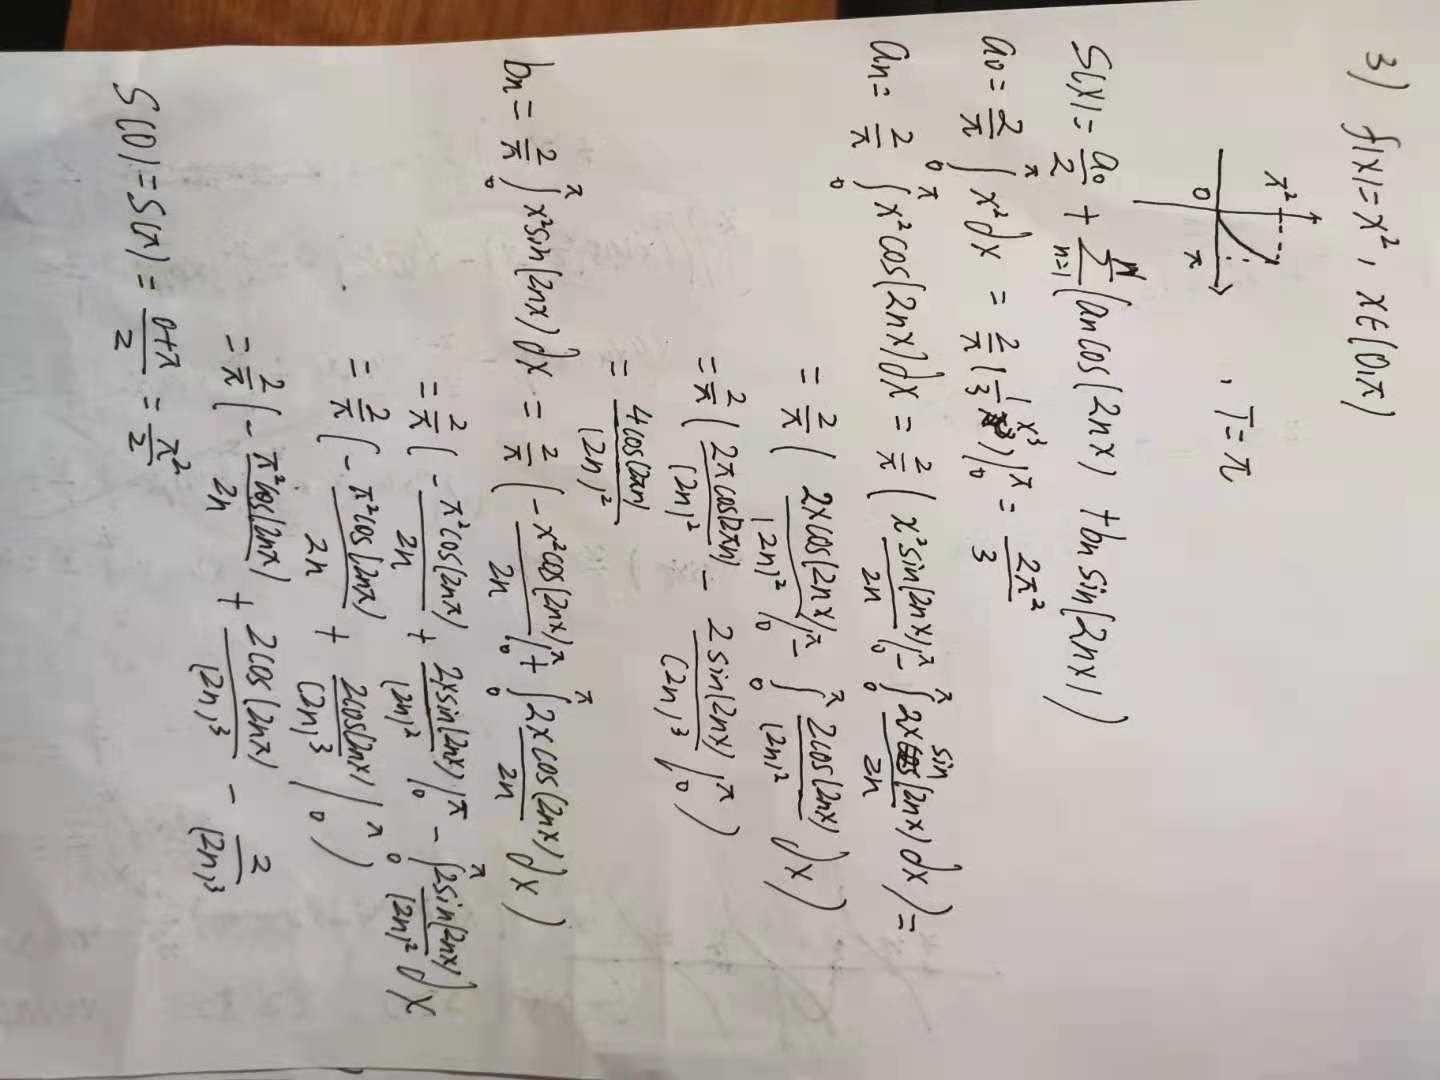 3) f(x)=x², x∈(0,π)
π²
, T=π
0 π
S(x)=a₀/2 + Σ_{n=1}^{N}(aₙcos(2nx) +bₙsin(2nx))
a₀= 2/π ∫₀^π x²dx = 2/π (1/3 x³)|₀^π = 2π²/3
aₙ= 2/π ∫₀^π x²cos(2nx)dx = 2/π ( x²sin(2nx)/2n |₀^π - ∫₀^π 2x sin(2nx)/2n dx)=
= 2/π ( 2xcos(2nx)/(2n)² |₀^π - ∫₀^π 2cos(2nx)/(2n)² dx)
= 2/π ( 2πcos(2πn)/(2n)² - 2sin(2nx)/(2n)³ |₀^π )
= 4cos(2πn)/(2n)²
bₙ= 2/π ∫₀^π x²sin(2nx)dx = 2/π (- x²cos(2nx)/2n |₀^π + ∫₀^π 2xcos(2nx)/2n dx)
= 2/π (- π²cos(2nπ)/2n + 2xsin(2nx)/(2n)² |₀^π - ∫₀^π 2sin(2nx)/(2n)² dx
= 2/π (- π²cos(2nπ)/2n + 2cos(2nx)/(2n)³ |₀^π )
= 2/π (- π²cos(2nπ)/2n + 2cos(2nπ)/(2n)³ - 2/(2n)³
S(0)=S(π) = 0+π/2 = π²/2